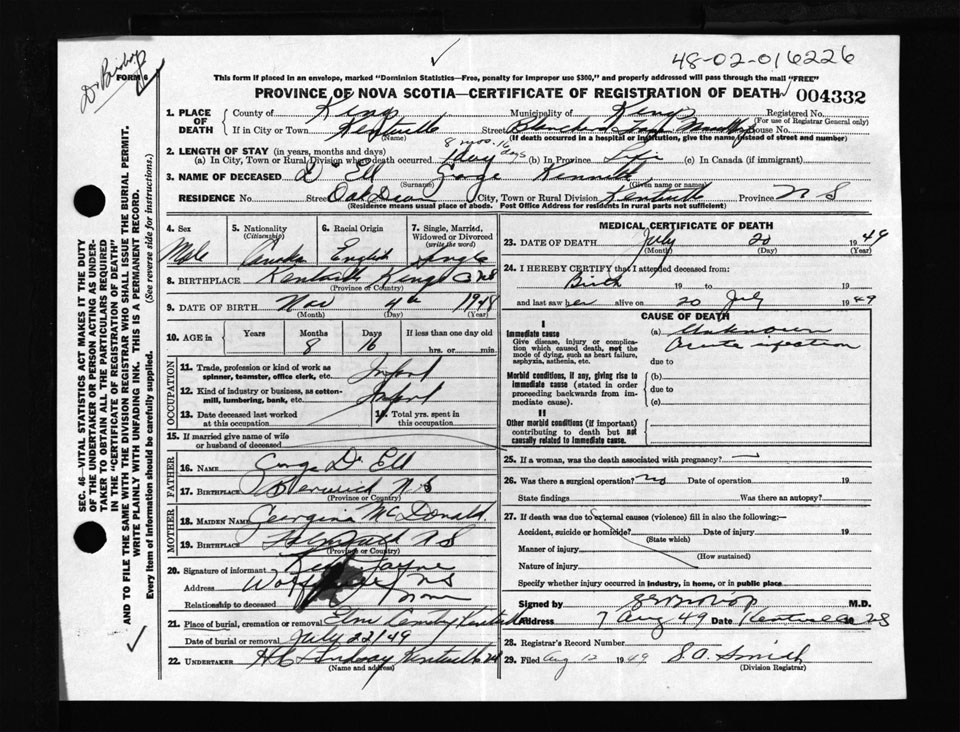 Dr Bishop
48-02-016226
FORM 6
This form if placed in an envelope, marked "Dominion Statistics—Free, penalty for improper use $300," and properly addressed will pass through the mail "FREE"
PROVINCE OF NOVA SCOTIA—CERTIFICATE OF REGISTRATION OF DEATH 004332
1. PLACE OF DEATH County of Kings Municipality of Kings Registered No.
(For use of Registrar General only)
If in City or Town Kentville Street House No.
(Name) (If death occurred in a hospital or institution, give the name instead of street and number)
8 mos. 16 days
2. LENGTH OF STAY (in years, months and days)
(a) In City, Town or Rural Division where death occurred (b) In Province Life (c) In Canada (if immigrant)
3. NAME OF DECEASED D'Ell George Kenneth
(Surname) (Given name or names)
RESIDENCE No Street Oakdene City, Town or Rural Division Kentville Province N S
(Residence means usual place of abode. Post Office Address for residents in rural parts not sufficient)
4. Sex 5. Nationality 6. Racial Origin 7. Single, Married, Widowed or Divorced
(Citizenship) (write the word)
Male Canada English Single
8. BIRTHPLACE Kentville Kings Co NS
(Province or Country)
9. DATE OF BIRTH Nov 4th 1948
(Month) (Day) (Year)
10. AGE in Years Months Days If less than one day old
8 16 hrs. or min.
OCCUPATION
11. Trade, profession or kind of work as spinner, teamster, office clerk, etc. Infant
12. Kind of industry or business, as cotton-mill, lumbering, bank, etc. Infant
13. Date deceased last worked at this occupation 14. Total yrs. spent in this occupation
15. If married give name of wife or husband of deceased
FATHER
16. NAME George D'Ell
17. BIRTHPLACE Berwick N S
(Province or Country)
MOTHER
18. MAIDEN NAME Georgina McDonald
19. BIRTHPLACE Falmouth N S
(Province or Country)
20. Signature of informant Jayne
Address Wolfville NS
Relationship to deceased None
21. Place of burial, cremation or removal Elm Cemtry Kentville
Date of burial or removal July 22/49
22. UNDERTAKER H C Lindsay Kentville NS
(Name and address)
MEDICAL CERTIFICATE OF DEATH
23. DATE OF DEATH July 20 1949
(Month) (Day) (Year)
24. I HEREBY CERTIFY that I attended deceased from:
Birth 19 to 19
and last saw her alive on 20 July 1949
CAUSE OF DEATH
I
Immediate cause (a) Unknown
Give disease, injury or complication which caused death, not the mode of dying, such as heart failure, asphyxia, asthenia, etc. Acute infection
due to
Morbid conditions, if any, giving rise to immediate cause (stated in order proceeding backwards from immediate cause). (b)
due to
(c)
II
Other morbid conditions (if important) contributing to death but not causally related to immediate cause.
25. If a woman, was the death associated with pregnancy?
26. Was there a surgical operation? no Date of operation 19
State findings Was there an autopsy?
27. If death was due to external causes (violence) fill in also the following:—
Accident, suicide or homicide? Date of injury 19
(State which)
Manner of injury
(How sustained)
Nature of injury
Specify whether injury occurred in industry, in home, or in public place
Signed by Bishop M.D.
Address 7 Aug 49 Date Kentville NS
28. Registrar's Record Number
29. Filed Aug 12 1949 S.A. Smith
(Division Registrar)
SEC. 46—VITAL STATISTICS ACT MAKES IT THE DUTY
OF THE UNDERTAKER OR PERSON ACTING AS UNDER-
TAKER TO OBTAIN ALL THE PARTICULARS REQUIRED
IN THE "CERTIFICATE OF REGISTRATION OF DEATH"
AND TO FILE THE SAME WITH THE DIVISION REGISTRAR WHO SHALL ISSUE THE BURIAL PERMIT.
WRITE PLAINLY WITH UNFADING INK. THIS IS A PERMANENT RECORD.
Every item of information should be carefully supplied. (See reverse side for instructions.)